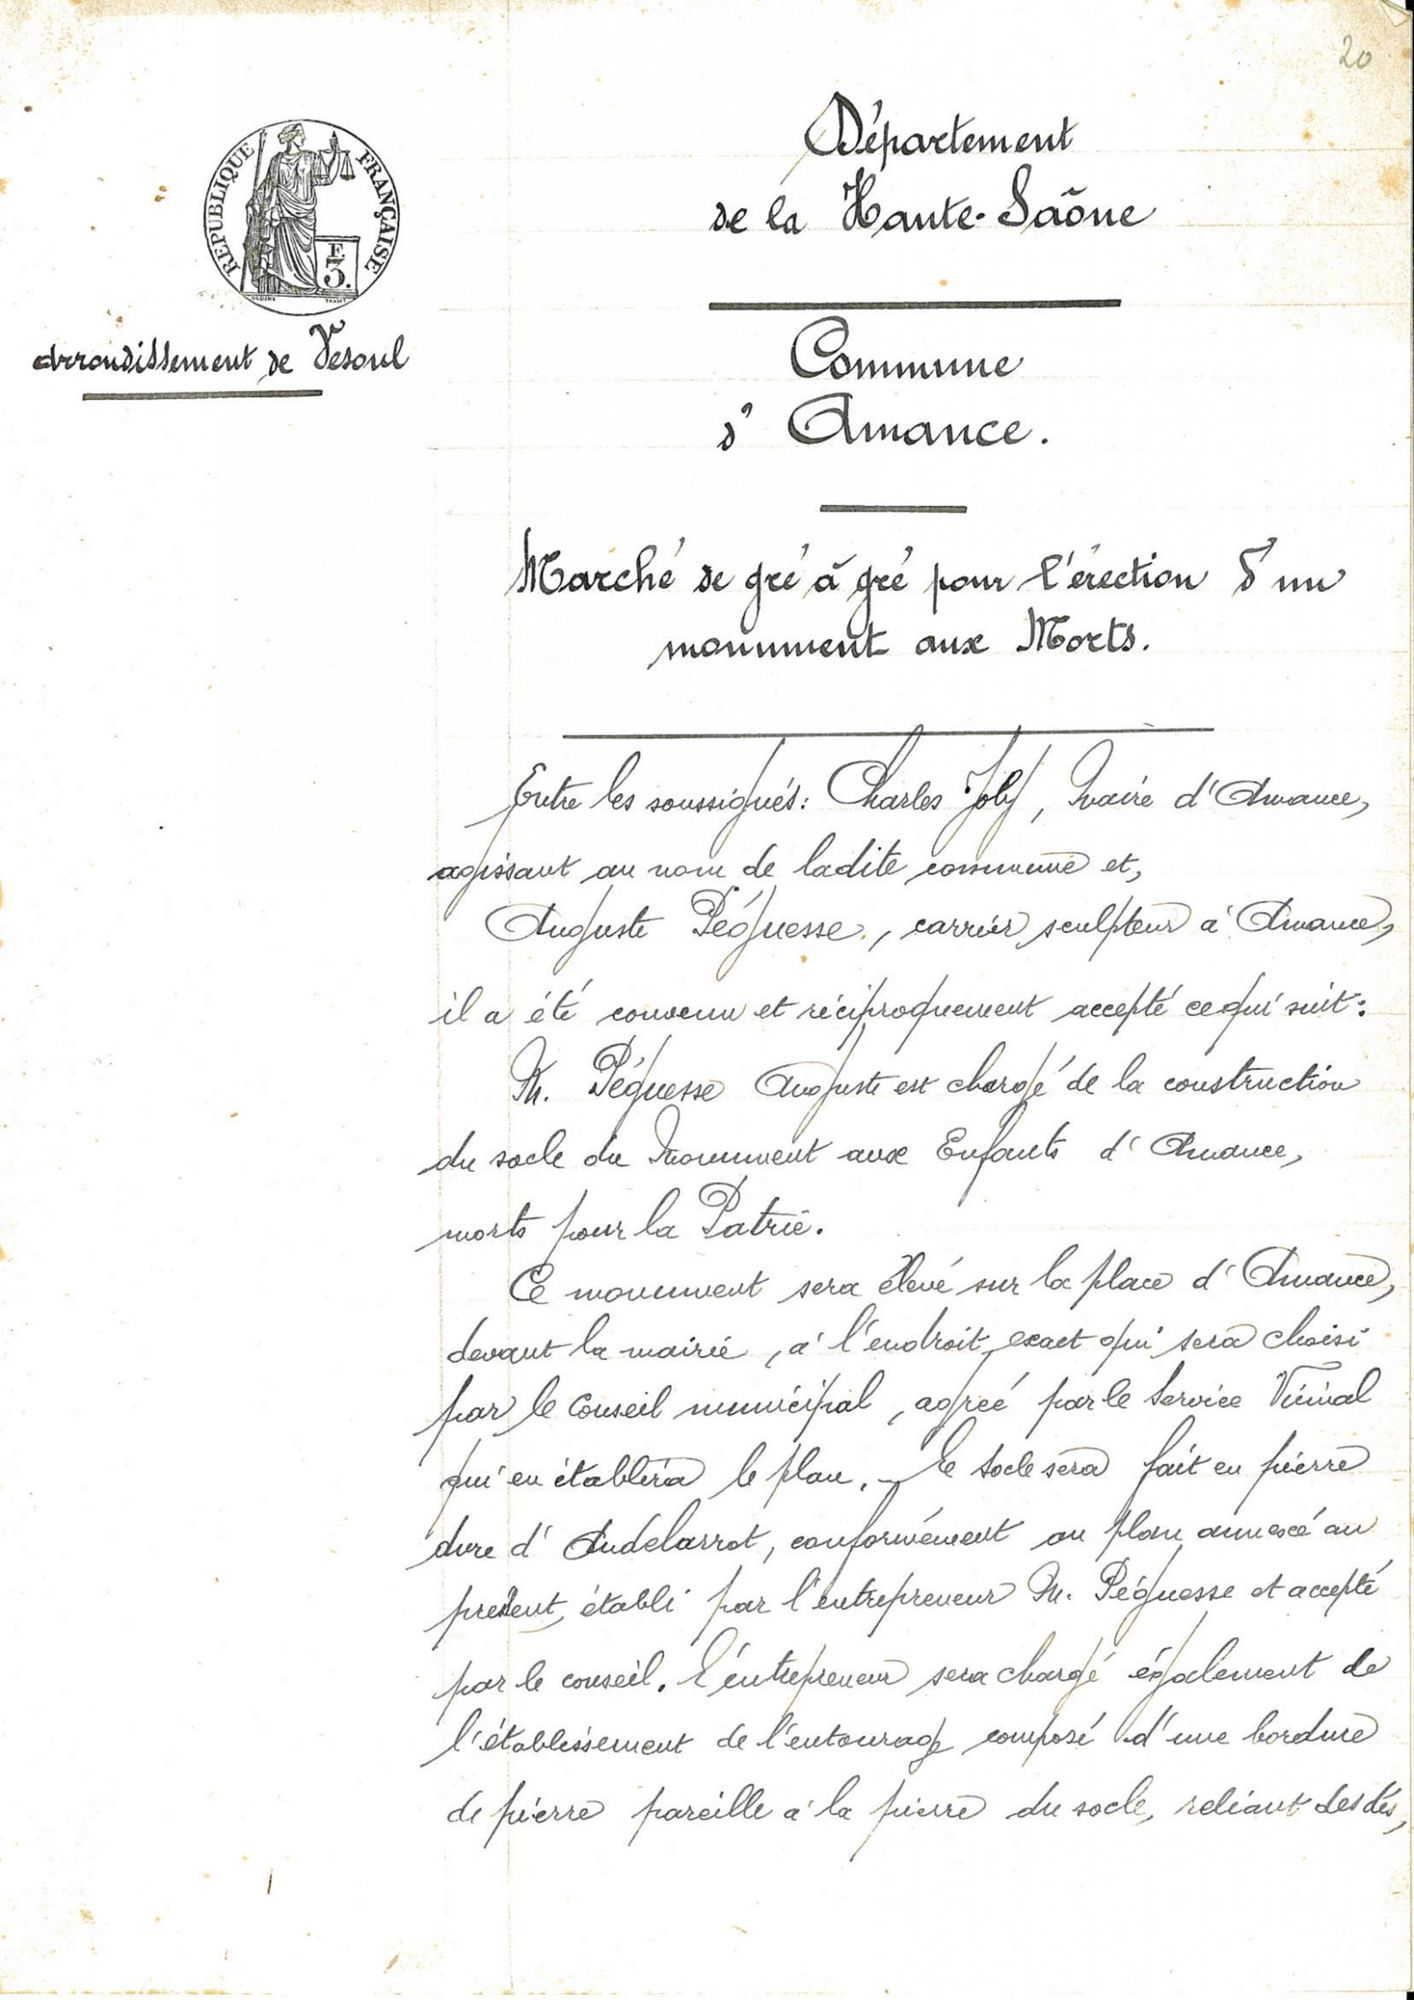 20
Département
de la Haute-Saône
RÉPUBLIQUE FRANÇAISE
E
3.
Arrondissement de Vesoul
Commune
d'Amance.
Marché de gré à gré pour l'érection d'un
monument aux Morts.
Entre les soussignés: Charles Joly, Maire d'Amance,
agissant au nom de ladite commune et,
Auguste Péguesse, carrier sculpteur à Amance,
il a été convenu et réciproquement accepté ce qui suit:
M. Péguesse Auguste est chargé de la construction
du socle du Monument aux Enfants d'Amance,
morts pour la Patrie.
Ce monument sera élevé sur la place d'Amance,
devant la mairie, à l'endroit exact qui sera choisi
par le Conseil municipal, agréé par le Service Vicinal
qui en établira le plan. - Le Socle sera fait en pierre
dure d'Andelarrot, conformément au plan annexé au
présent, établi par l'entrepreneur M. Péguesse et accepté
par le conseil. L'entrepreneur sera chargé également de
l'établissement de l'entourage composé d'une bordure
de pierre pareille à la pierre du socle, reliant des dés,